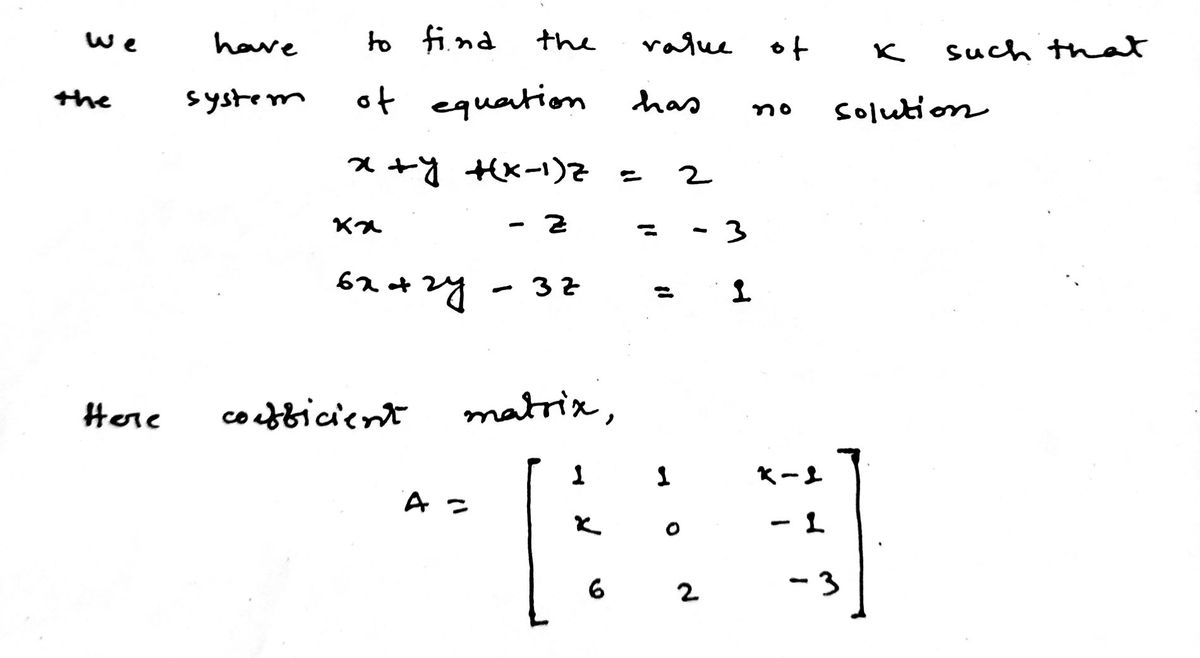 We have to find the value of K such that
the system of equation has no solution
x + y + (K-1)z = 2
Kx - z = -3
6x + 2y - 3z = 1
Here coefficient matrix,
A = [ 1 1 K-1
K 0 -1
6 2 -3 ]